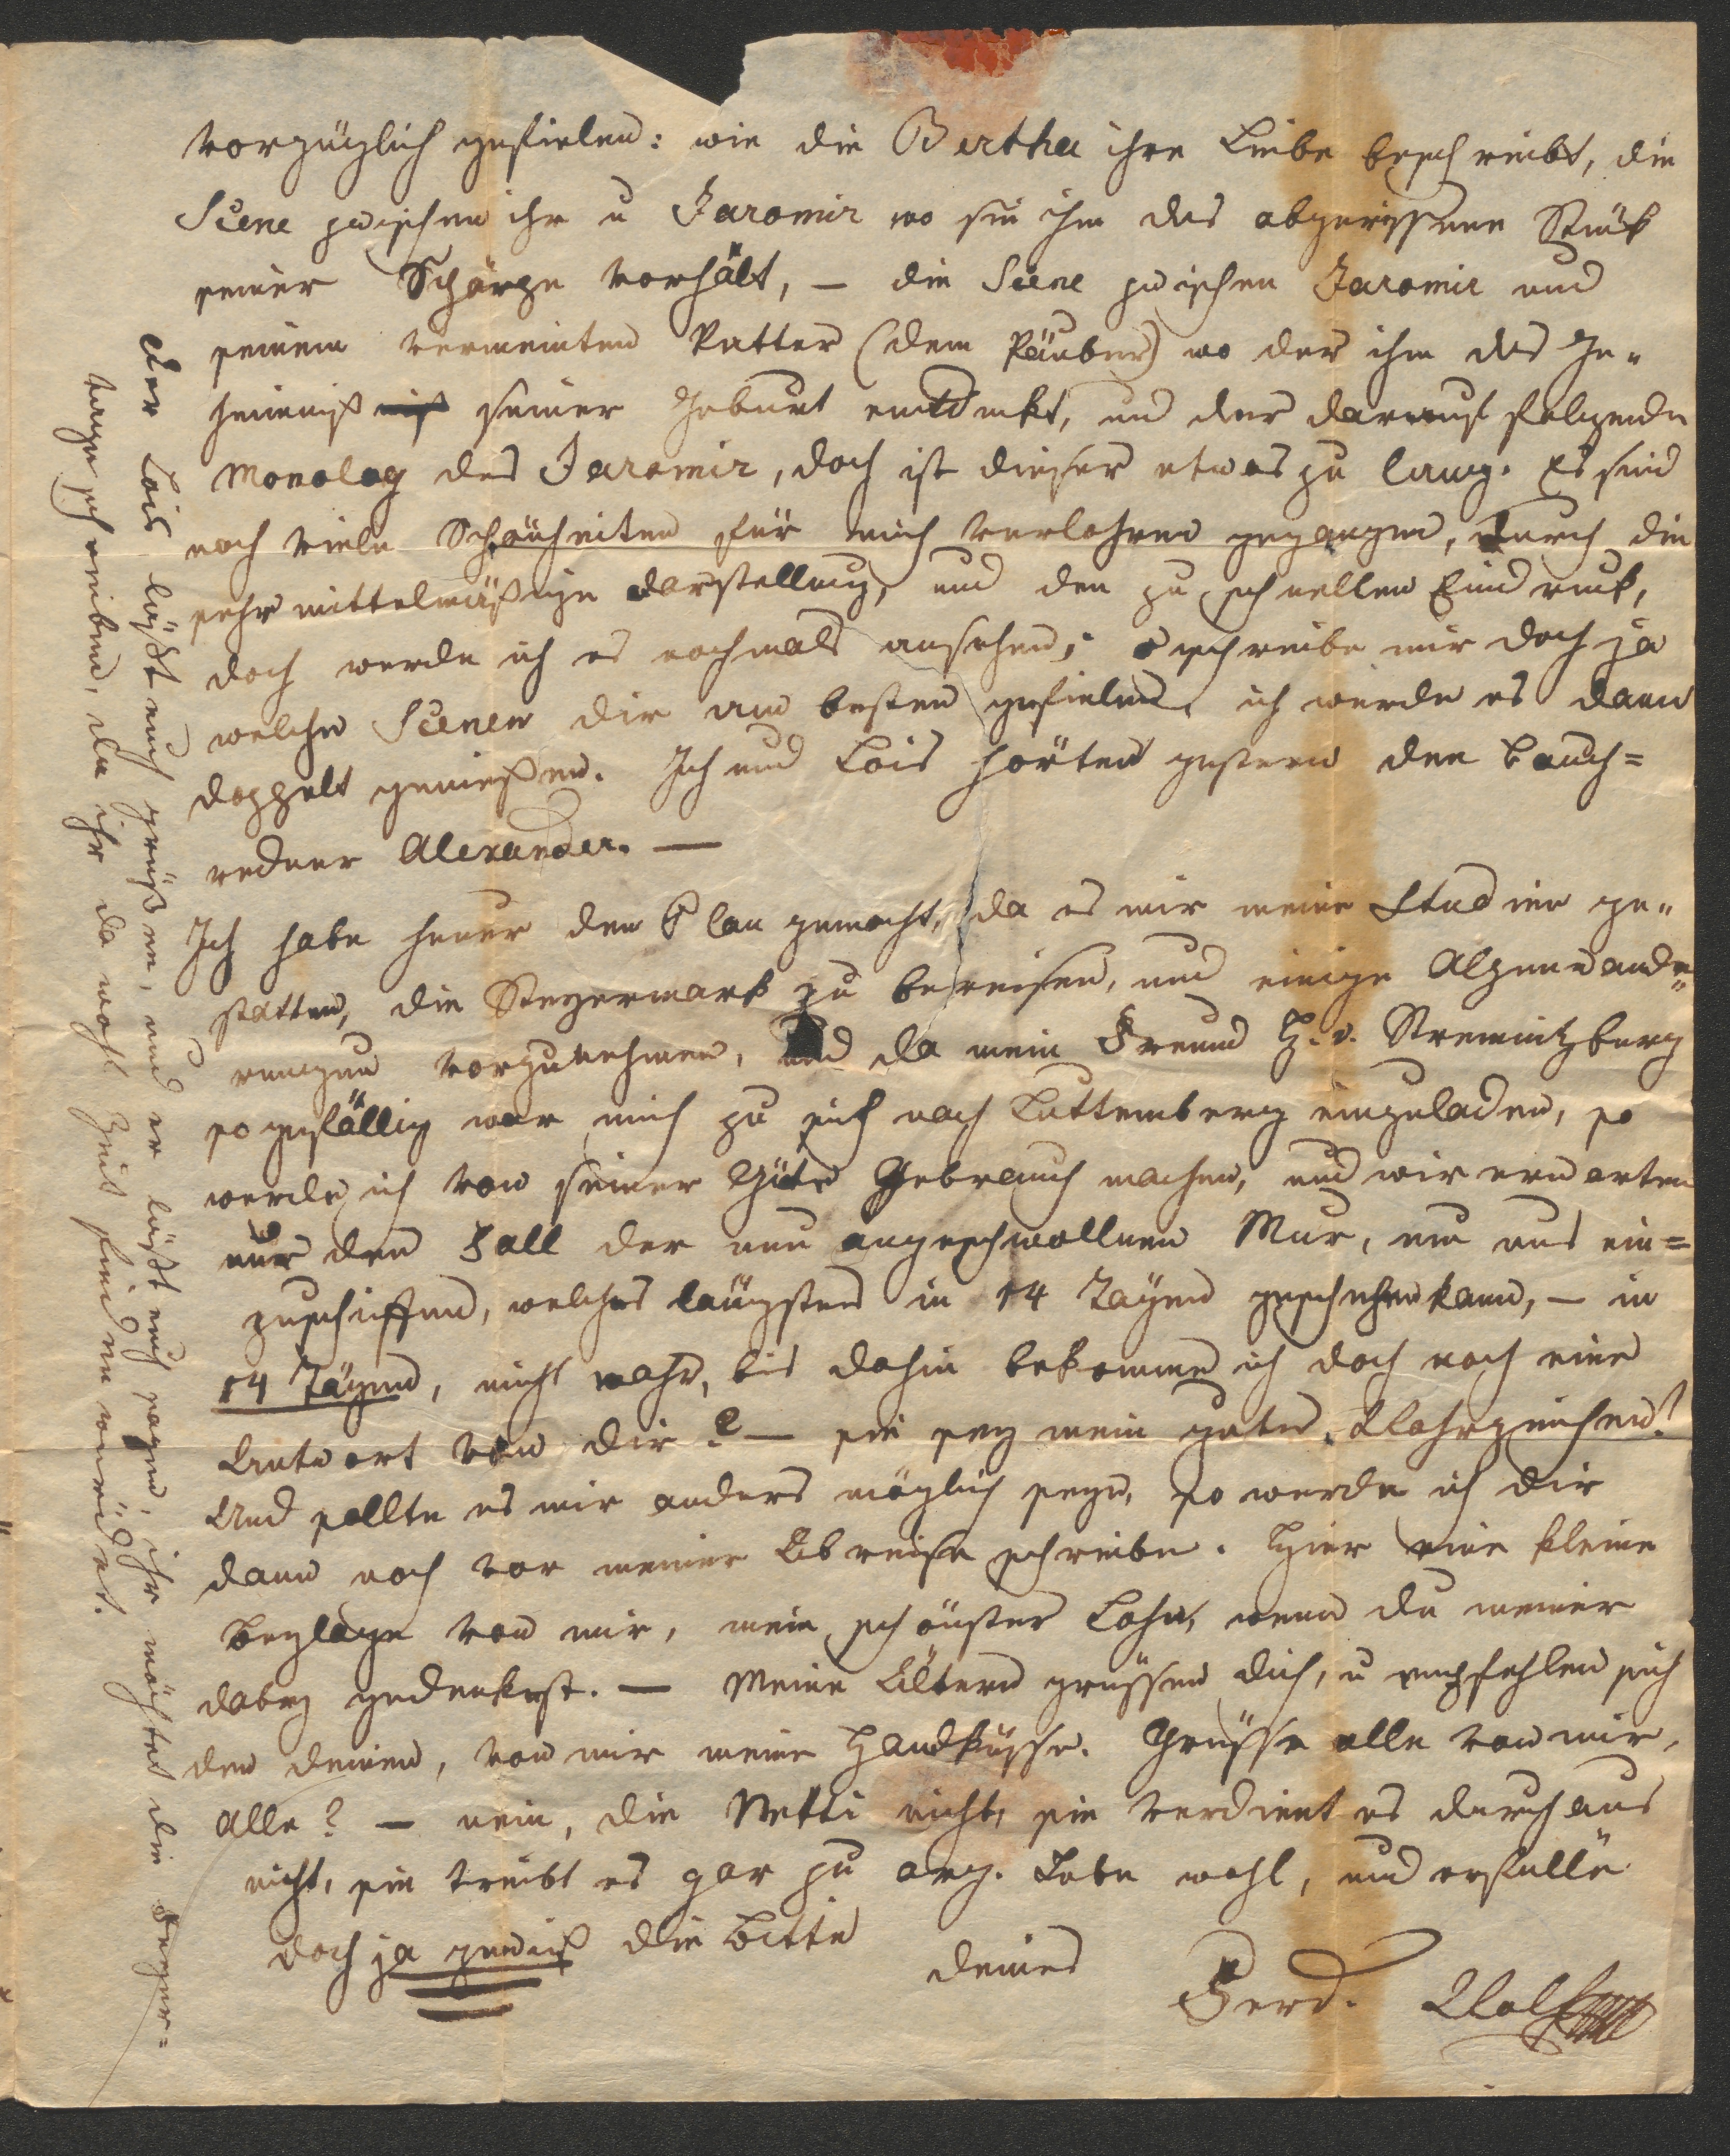 vorzüglich gefielen: wie die Bertha ihre Liebe beschreibt, die
Scene zwischen ihr u Jaromir wo sie ihm das abgerissene Stük
seiner Schärpe vorhält, – die Scene zwischen Jaromir und
seinem vermeinten Vatter (dem Räuber) wo der ihm das Ge-
heimniß seiner Geburt entdekt, und der darauf folgende
Monolog des Jaromir, doch ist dieser etwas zu lang. Es sind
noch viele Schönheiten für mich verlohren gegangen, durch die
sehr mittelmäßige Darstellung, und den zu schnellen Eindruk,
doch werde ich es nochmals ansehen; o schreibe mir doch ja
welche Scenen dir am besten gefielen, ich werde es dann
doppelt genießen. Ich und Lois hörten gestern den Bauch=
redner Alexander. —
Ich habe heuer den Plan gemacht, da es mir meine Studien ge-
statten, die Steyermark zu bereisen, und einige Alpenwande-
rungen vorzunehmen, und da mein Freund H. v. Stremitzberg
so gefällig war mich zu sich nach Luttemberg einzuladen, so
werde ich von seiner Güte Gebrauch machen, und wir erwarten
nur den Fall der nun angeschwollnen Mur, um uns ein=
zuschiffen, welches längstens in 14 Tägen geschehen kann, – in
14 Tägen, nicht wahr, bis dahin bekomme ich doch noch eine
Antwort von dir? — sie sey mein gutes Wahrzeichen!
Und sollte es mir anders möglich seyn, so werde ich dir
dann noch vor meiner Abreise schreiben. Hier eine kleine
Beylage von mir, mein schönster Lohn, wenn du meiner
dabey gedenkest. — Meine Ältern grüssen dich, u empfehlen sich
den deinen, von mir meine Handküsse. Grüsse alle von mir,
Alle? — nein, die Netti nicht, sie verdient es durchaus
nicht, sie treibt es gar zu arg. Lebe wohl, und erfülle
doch ja gewiß die Bitte
deines
Ferd. Wolf
Der Lois läßt euch grüßen, und er läßt euch sagen, ihr möchtet die
tage schreiben, da ihr da wohl Zeit finden würdet.